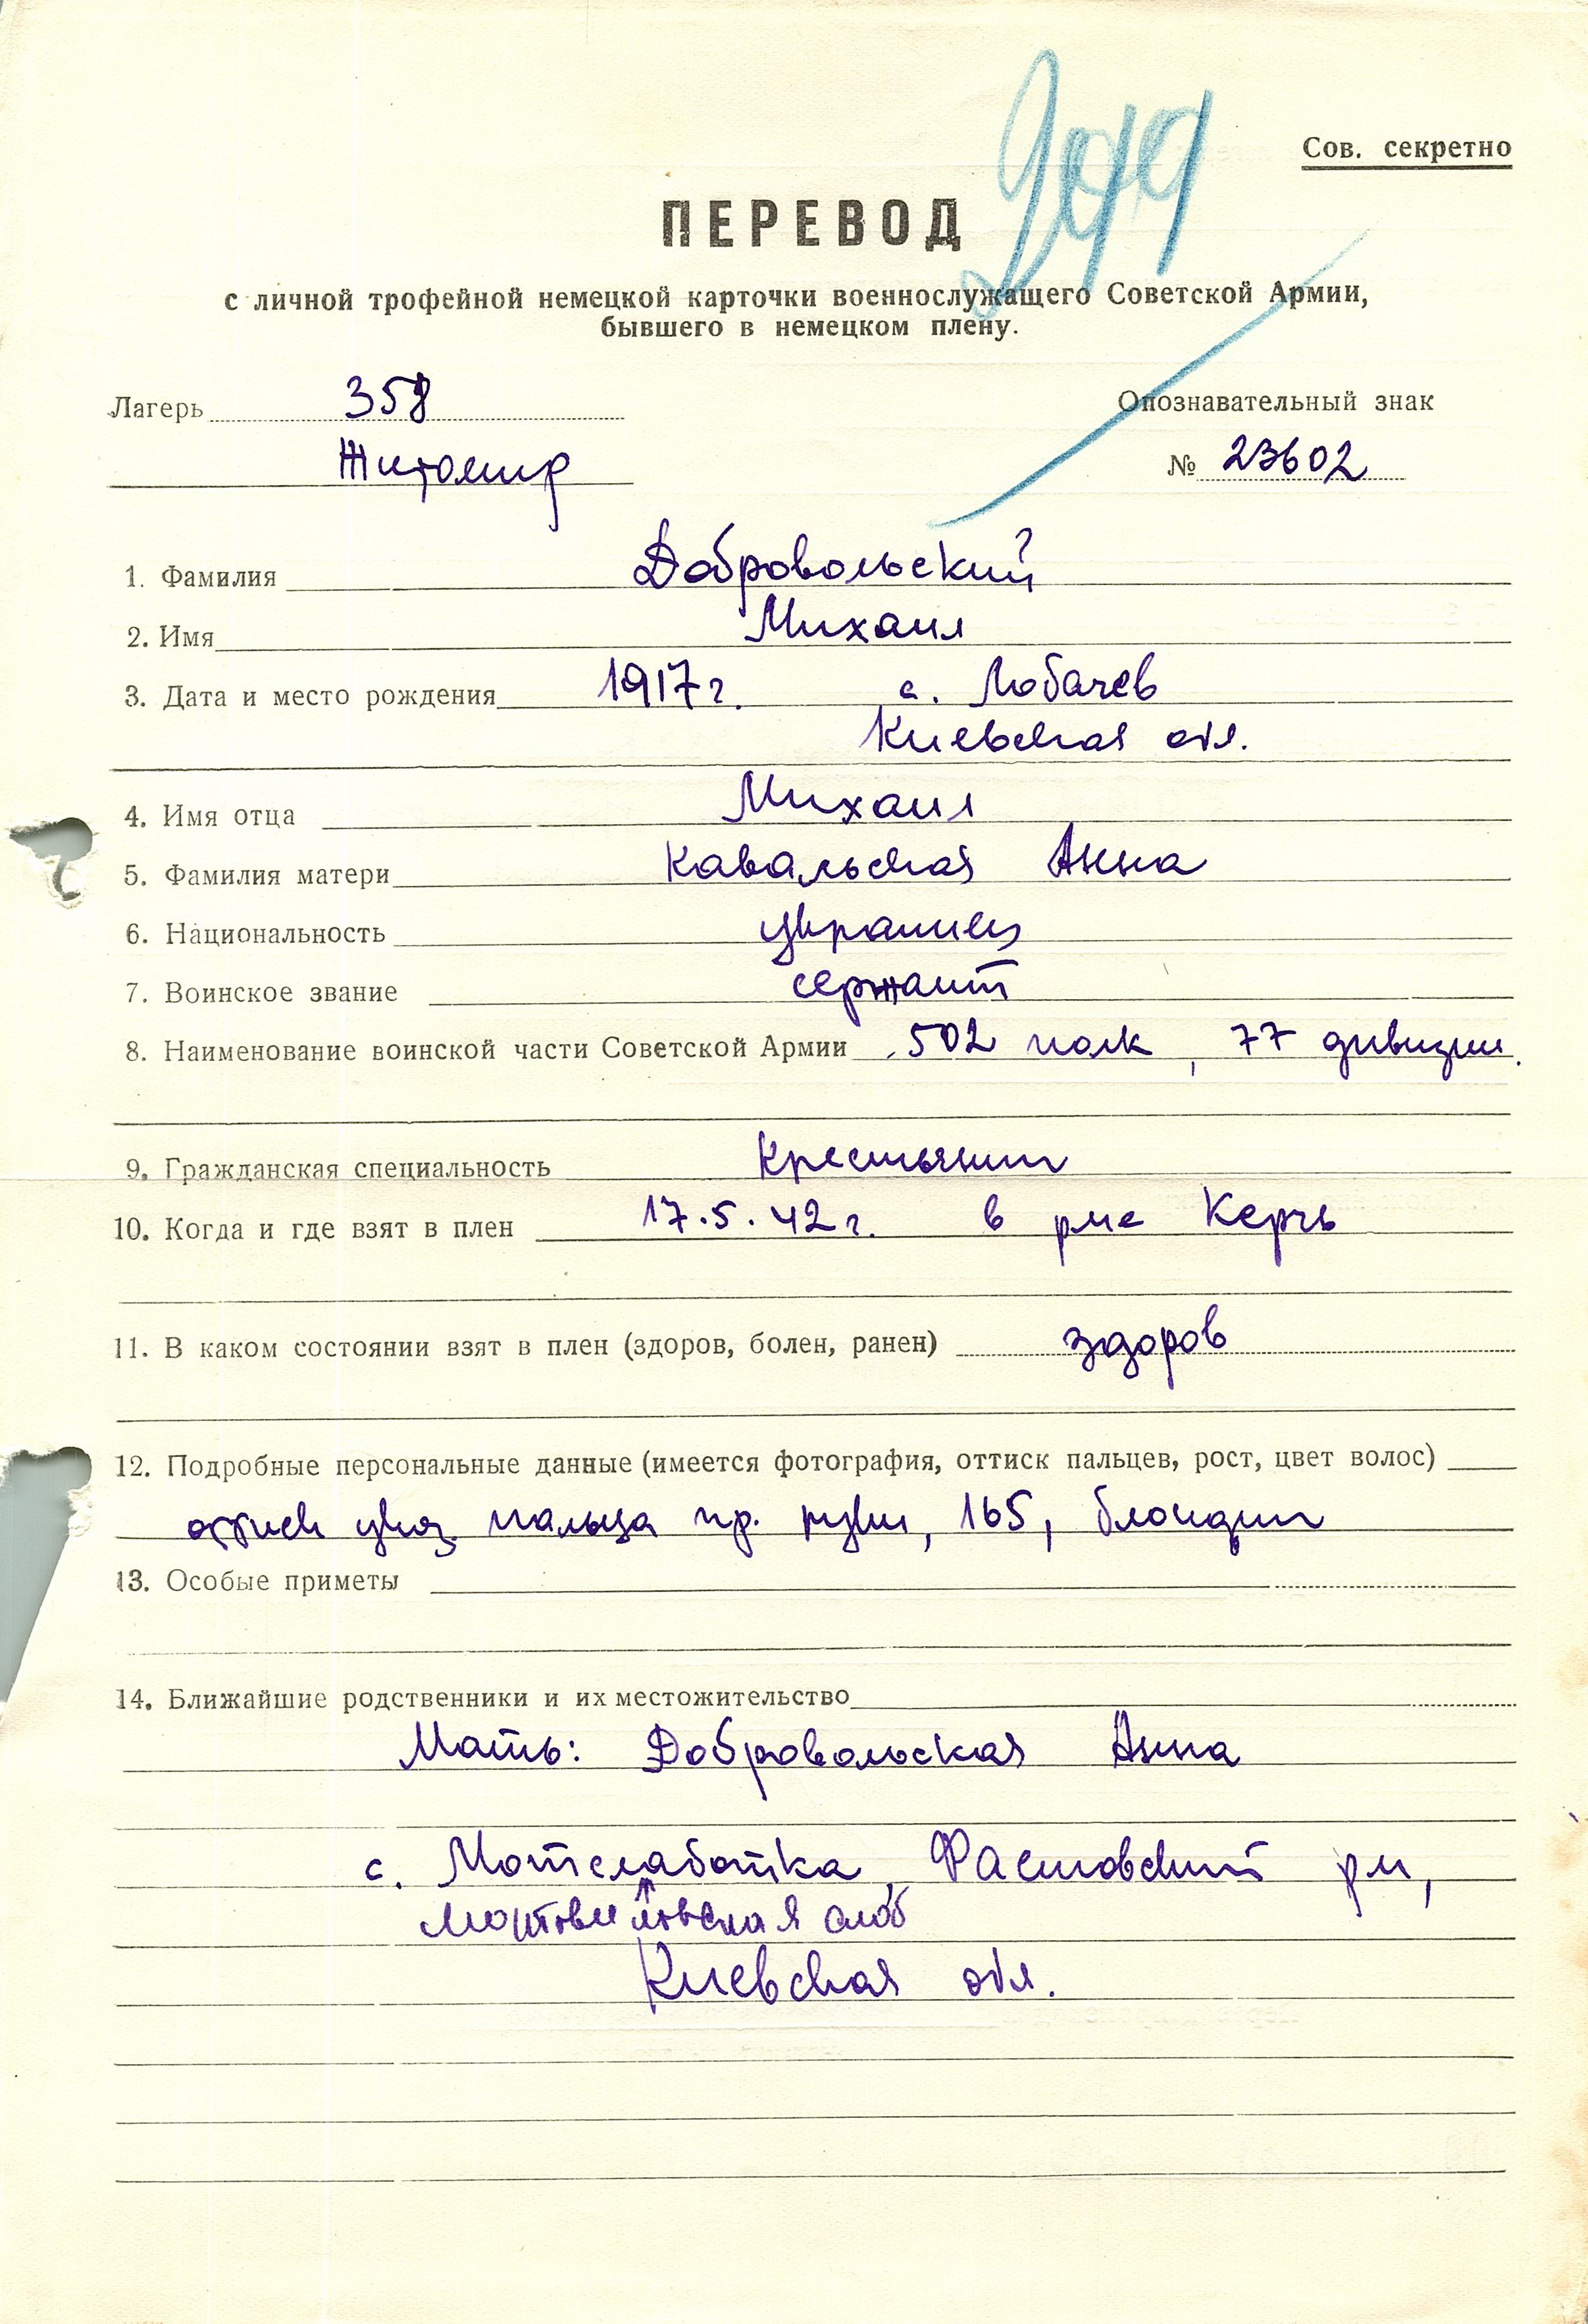 Сов. секретно
ПЕРЕВОД
с личной трофейной немецкой карточки военнослужащего Советской Армии,
бывшего в немецком плену.
Лагерь 358
Опознавательный знак
Житомир
№ 23602
1. Фамилия Добровольский
2. Имя Михаил
3. Дата и место рождения 1917 г. с. Лобачев
Киевская обл.
4. Имя отца Михаил
5. Фамилия матери Кавальская Анна
6. Национальность украинец
7. Воинское звание сержант
8. Наименование воинской части Советской Армии 502 полк, 77 дивизии
9. Гражданская специальность крестьянин
10. Когда и где взят в плен 17.5.42 г. в рне Керчь
11. В каком состоянии взят в плен (здоров, болен, ранен) здоров
12. Подробные персональные данные (имеется фотография, оттиск пальцев, рост, цвет волос)
оттиск указ. пальца пр. руки, 165, блондин
13. Особые приметы
14. Ближайшие родственники и их местожительство
Мать: Добровольская Анна
с. Мотслаботка, Фастовский рн,
слоб
Киевская обл.